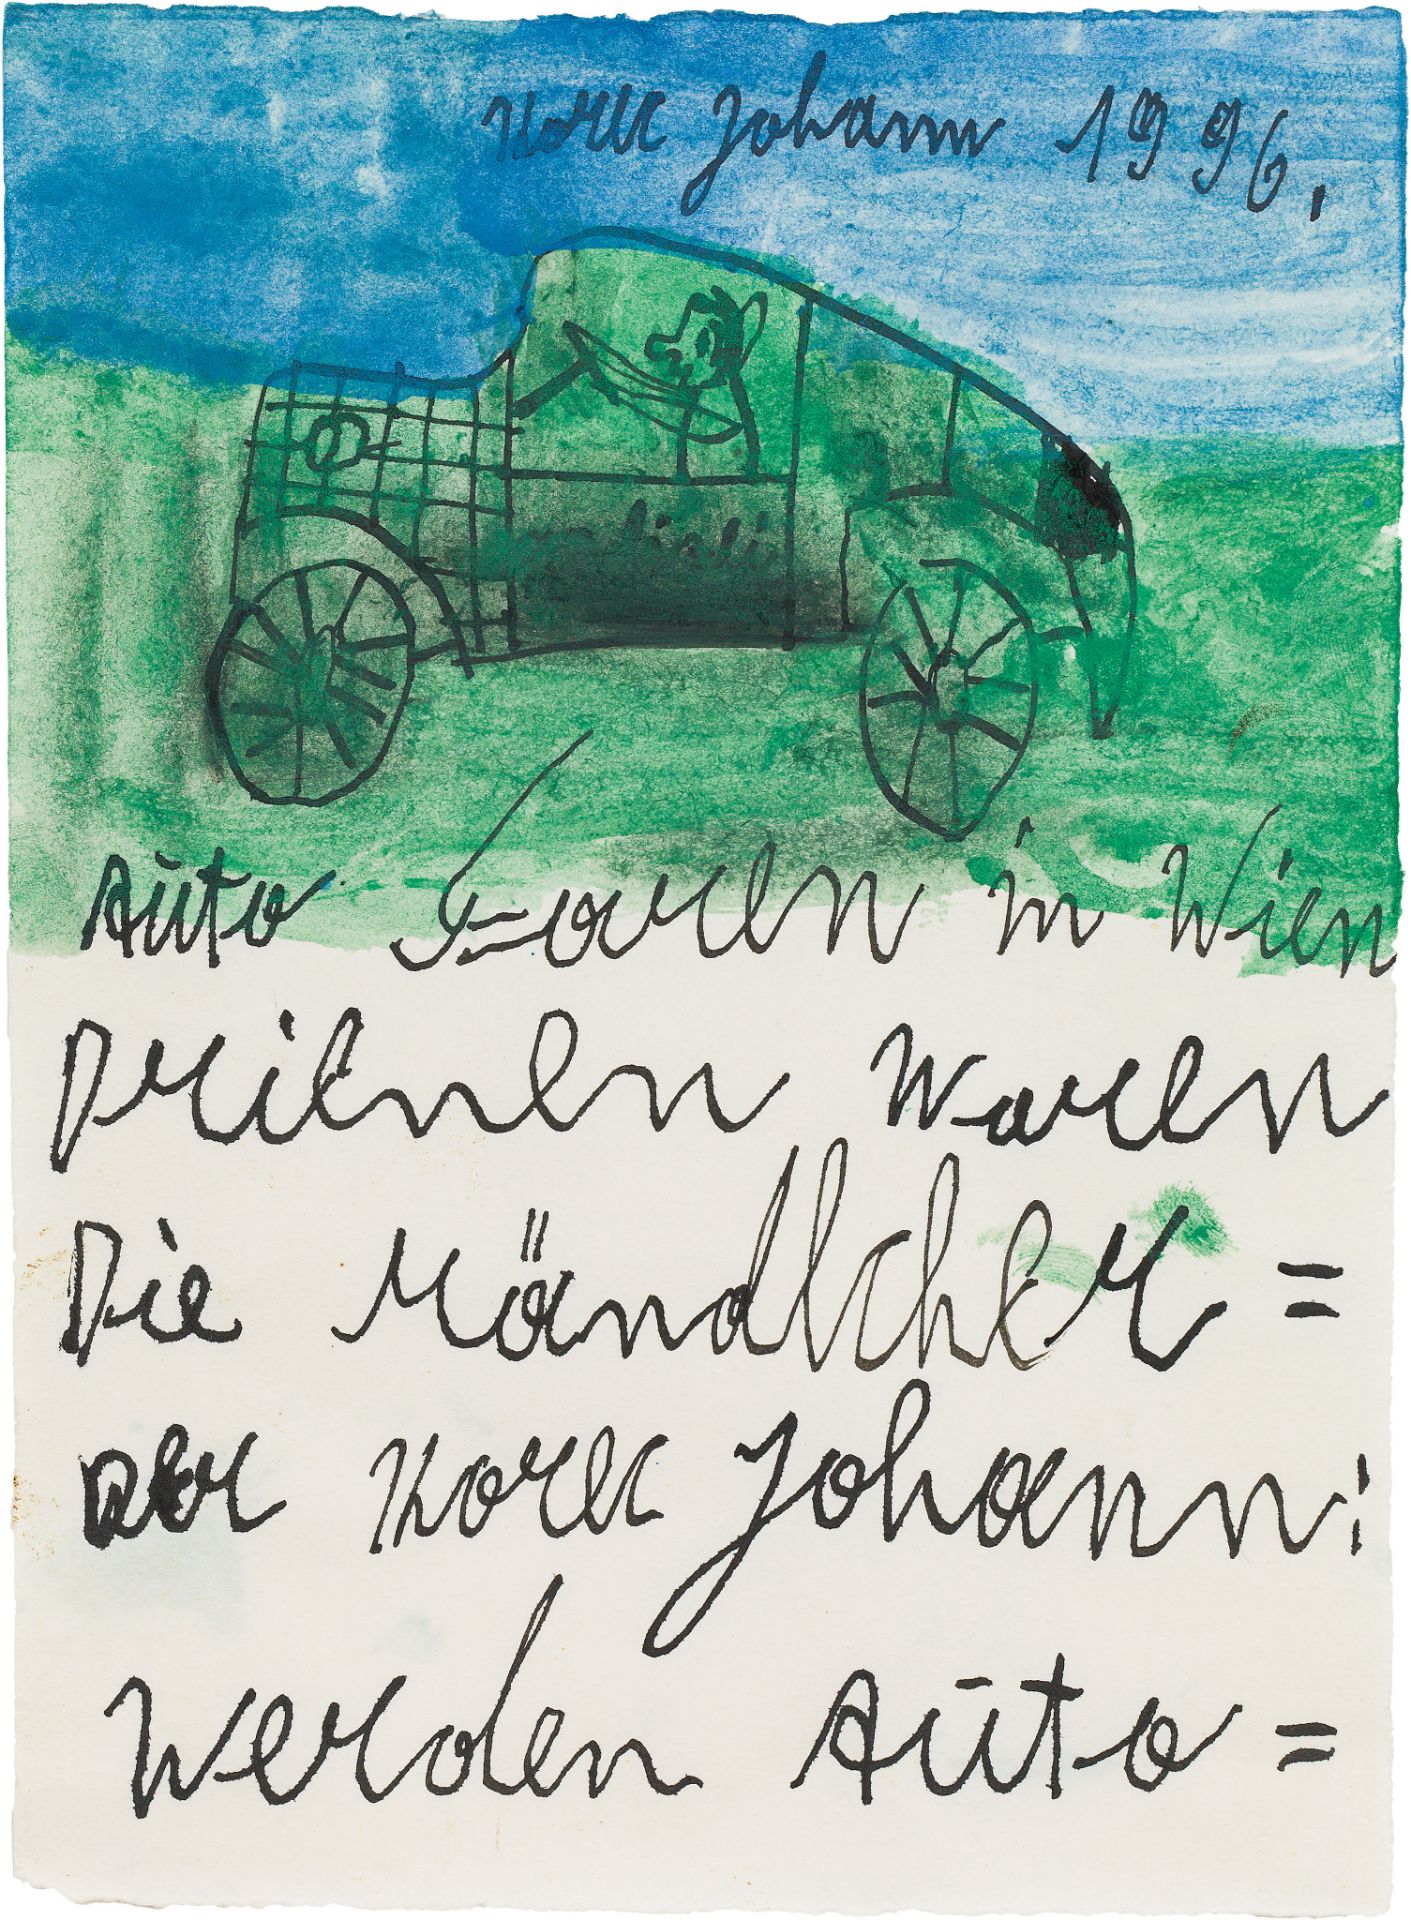 Korec Johann 1996.
Auto Faren in Wien
Drienen Waren
Die Mändlcher =
Der Korec Johann:
Werden Auto =